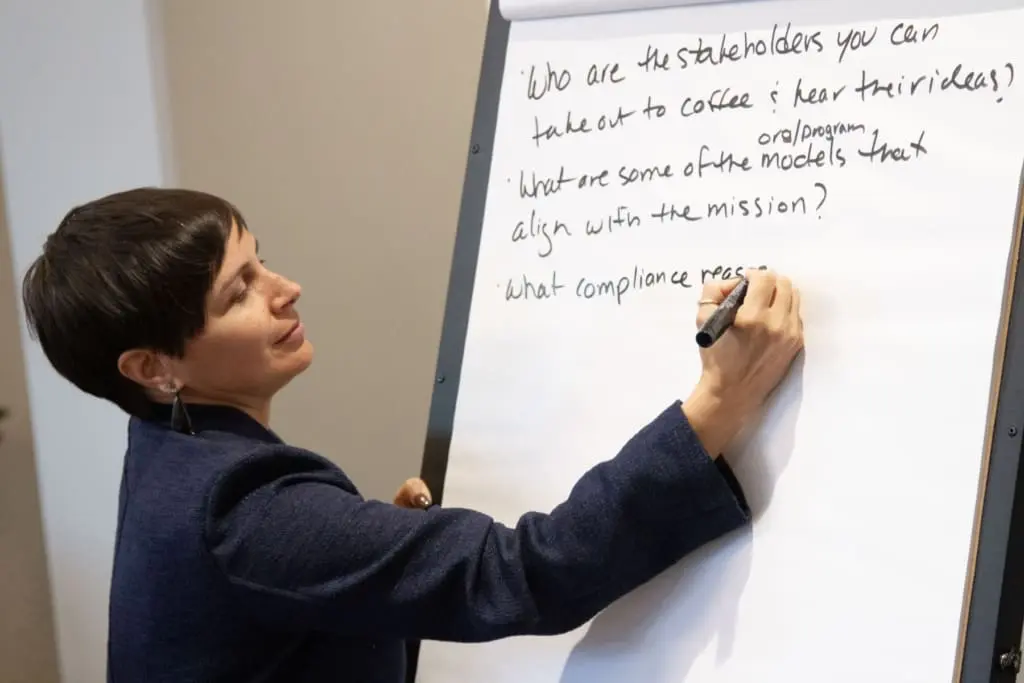 · Who are the stakeholders you can
take out to coffee & hear their ideas?
org/program
· What are some of the models that
align with the mission?
· What compliance